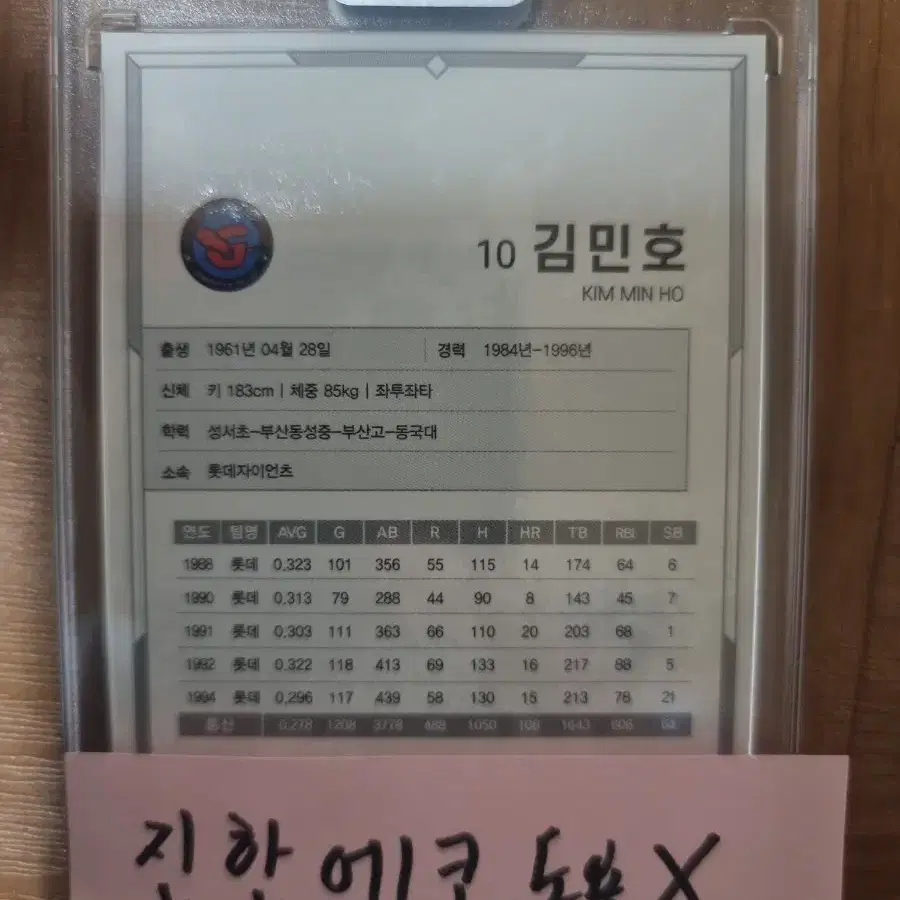 10 김민호
KIM MIN HO
출생 1961년 04월 28일 경력 1984년-1996년
신체 키 183cm | 체중 85kg | 좌투좌타
학력 성서초-부산동성중-부산고-동국대
소속 롯데자이언츠
연도 팀명 AVG G AB R H HR TB RBI SB
1988 롯데 0.323 101 356 55 115 14 174 64 6
1990 롯데 0.313 79 288 44 90 8 143 45 7
1991 롯데 0.303 111 363 66 110 20 203 68 1
1992 롯데 0.322 118 413 69 133 16 217 88 5
1994 롯데 0.296 117 439 58 130 15 213 78 21
통산 0.278 1208 3778 488 1050 106 1643 606
진한에코 도용X